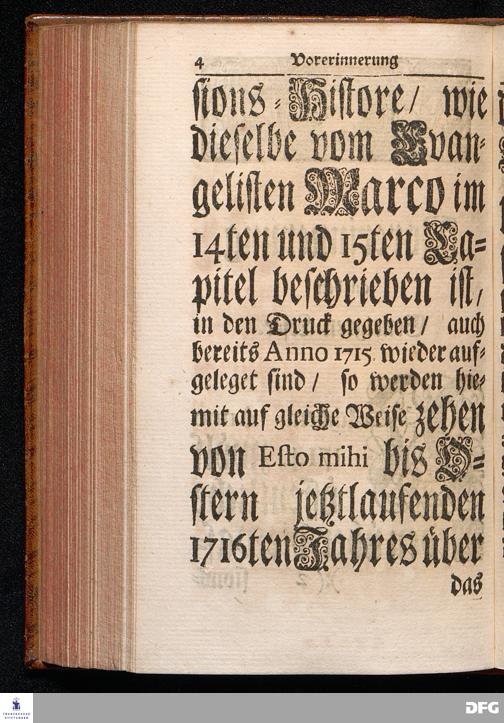 4 Vorerinnerung
sions-Histore/ wie
dieselbe vom Evan-
gelisten Marco im
14ten und 15ten Ca-
pitel beschrieben ist,
in den Druck gegeben/ auch
bereits Anno 1715. wieder auf-
geleget sind/ so werden hie-
mit auf gleiche Weise zehen
von Esto mihi bis O-
stern jetztlaufenden
1716ten Jahres über
das
FRANCKESCHE
STIFTUNGEN
DFG